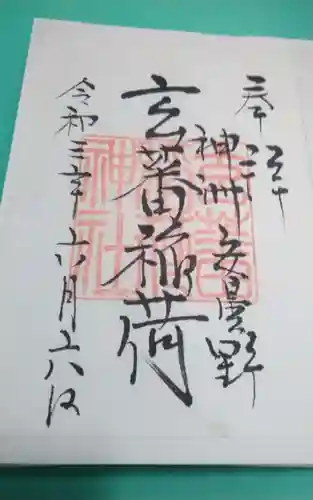 奉拝
神洲 安曇野
玄蕃稲荷
神社
令和三年六月二六日